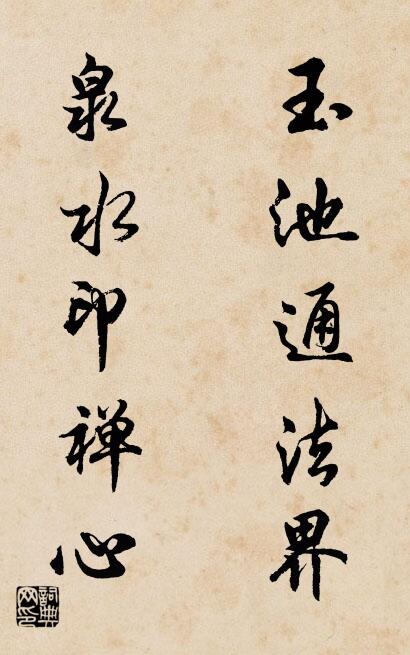 玉池通法界
泉水印禅心
詞典网印